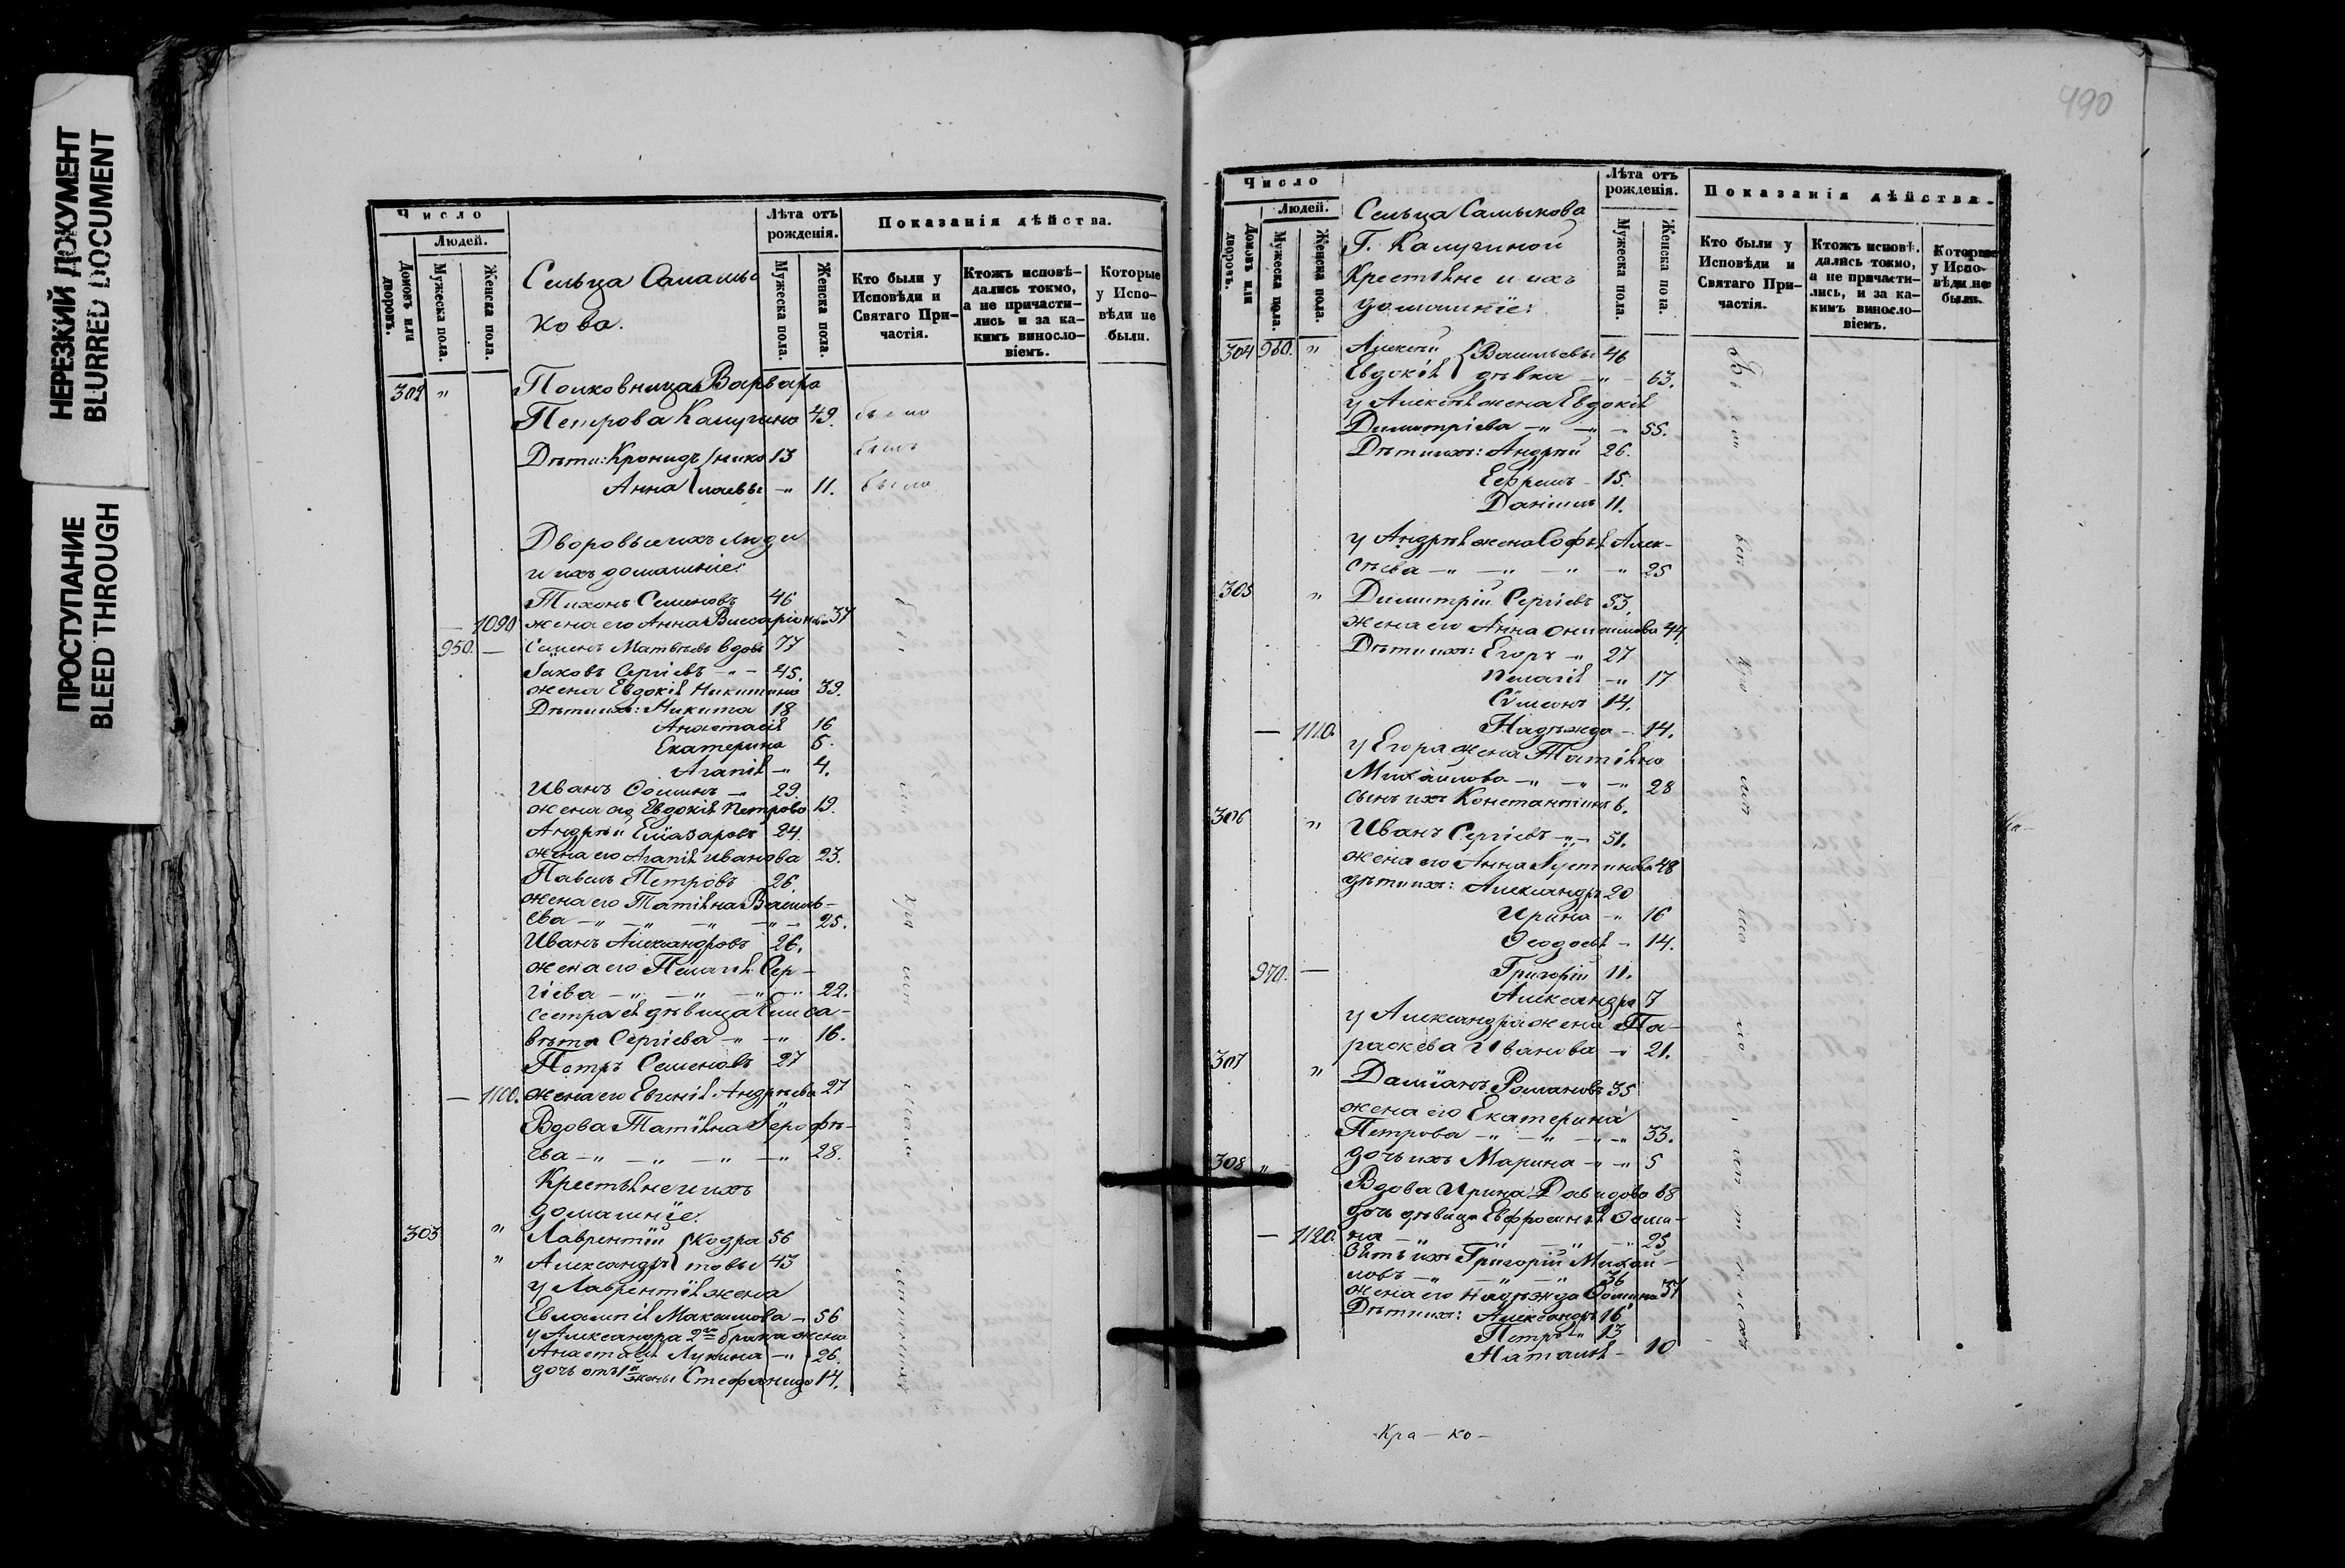 НЕРЕЗКИЙ ДОКУМЕНТ
BLURRED DOCUMENT
ПРОСТУПАНИЕ
BLEED THROUGH
Число
Людей.
Домовъ или дворовъ.
Мужеска пола.
Женска пола.
Сельца Самаль
кова.
Лѣта отъ рожденія.
Мужеска пола.
Женска пола.
Показанія дѣйства.
Кто были у Исповѣди и Святаго Причастія.
Ктожъ исповѣ-
дались токмо,
а не причасти-
лись и за ка-
кимъ винослo-
віемъ.
Которые
у Испо-
вѣди не
были.
302 " Полковница Варвара
Петрова Калугина 49. была
Дѣти: Кронидъ нико 13 былъ
Анна лаевы -"- 11. была
Дворовые ихъ люди
и ихъ домашніе:
Тихонъ Семеновъ 46
— 1090 жена его Анна Виссаріонова 37
950. — Симеонъ Матвѣевъ вдовъ 77
Іаковъ Сергіевъ -"- 45.
жена Евдокія Никитина 39.
Дѣти ихъ: Никита 18
Анастасія 16
Екатерина 5.
Агапія -"- 4.
Иванъ Ѳоминъ -"- 29.
жена его Евдокія Петрова 19.
Андрей Елиазаровъ 24.
жена его Агапія Иванова 23.
Павелъ Петровъ 26.
жена его Татіяна Василь-
ева -"- -"- -"- -"- 25.
Иванъ Александровъ 26.
жена его Пелагія Сер-
гіева -"- -"- -"- 22.
сестра ея дѣвица Елиса-
вѣта Сергіева -"- -"- 16.
Петръ Семеновъ 27
— 1100. жена его Евгенія Андреева 27
Вдова Татіяна Ерофѣ-
ева -"- -"- -"- -"- 28.
Крестьяне и ихъ
домашніе:
303 " Лаврентій Кодра 56
" Александръ товы 43
у Лаврентія жена
Евлампія Максимова - 56
у Александра 2го брака жена
Анастасія Лукина -"- 26.
дочь отъ 1й жены Стефанида 14.
490
Число
Людей.
Домовъ или дворовъ.
Мужеска пола.
Женска пола.
Сельца Самыкова
Г. Калугиной
Крестьяне и ихъ
домашніе:
Лѣта отъ рожденія.
Мужеска пола.
Женска пола.
Показанія дѣйства.
Кто были у Исповѣди и Святаго Причастія.
Ктожъ исповѣ-
дались токмо,
а не причасти-
лись, и за ка-
кимъ винослo-
віемъ.
Которые
у Испо-
вѣди не
были.
304 960. " Алексей Васильевы 46
Евдокія дѣвка -"- 63.
у Алексея жена Евдокія
Димитріева -"- -"- - 55.
Дѣти ихъ: Андрей 26.
Ефремъ - 15.
Даніилъ 11.
у Андрея жена Софья Алек-
сѣева -"- -"- -"- " 25
305 " Димитрій Сергіевъ 53.
жена его Анна Онисимова 44.
Дѣти ихъ: Егоръ -"- 27
Пелагія -"- 17
Симеонъ 14.
— 1110. Надежда - 14.
у Егора жена Татіяна
Михайлова -"- -"- -"- 28
сынъ ихъ Константинъ 6.
306 " Иванъ Сергіевъ -"- 51.
жена его Анна Іустинова 48
дѣти ихъ: Александръ 20
Ирина -"- 16
Ѳеодосія - 14.
970. — Григорій 11.
Александра 7
у Александра жена Па-
раскева Иванова -"- 21.
307 " Даміанъ Романовъ 35
жена его Екатерина
Петрова -"- -"- -"- 33.
дочь ихъ Марина -"- -"- 5
308 " Вдова Ирина Давидова 68
дочь дѣвица Евфросинія Ѳоми-
— 1120. на -"- -"- -"- -"- 25
Зять ихъ Григорій Михай-
ловъ -"- -"- -"- 36
жена его Надежда Ѳомина 37
Дѣти ихъ: Александръ 16
Петръ -"- 13
Наталія - 10
Кра — ко —